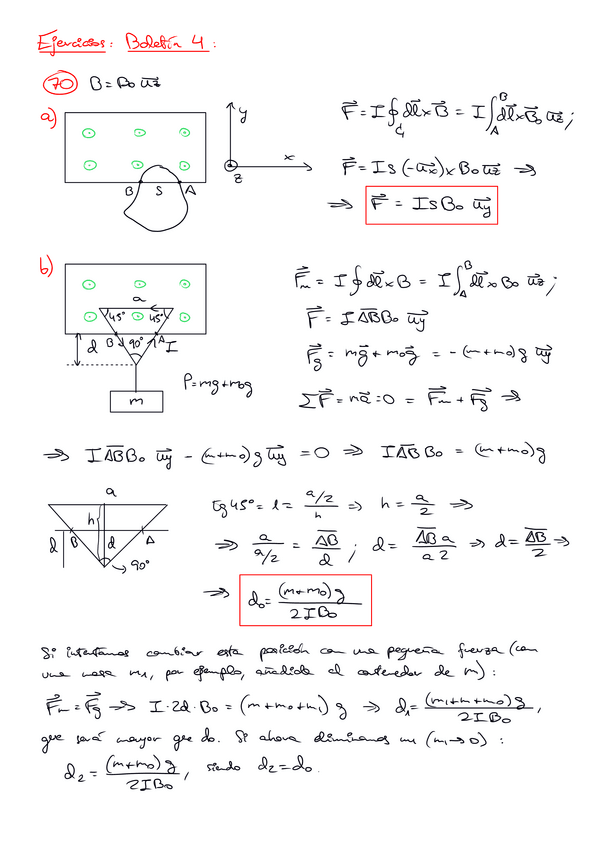 Ejercicios: Boletín 4:
70 B = B₀ u⃗z
a)
y
x
z
B S A
F⃗ = I ∮_{C₁} dl⃗ × B⃗ = I ∫_A^B dl⃗ × B⃗₀ u⃗z ;
F⃗ = I s (-u⃗x) × B₀ u⃗z ⇒
⇒ F⃗ = I s B₀ u⃗y
b)
a
45° 45°
d B 90° A I
m
P = mg + m₀g
F⃗m = I ∮ dl⃗ × B = I ∫_A^B dl⃗ × B₀ u⃗z ;
F⃗ = I AB B₀ u⃗y
F⃗g = mg⃗ + m₀g⃗ = -(m+m₀)g u⃗y
ΣF⃗ = ma⃗ = 0 = F⃗m + F⃗g ⇒
⇒ I AB B₀ u⃗y - (m+m₀)g u⃗y = 0 ⇒ I AB B₀ = (m+m₀)g
a
h
d B d A
90°
tg 45° = 1 = (a/2)/h ⇒ h = a/2 ⇒
⇒ a/(a/2) = AB/d ; d = AB a/(a 2) ⇒ d = AB/2 ⇒
⇒ d₀ = (m+m₀)g/(2IB₀)
Si intentamos cambiar esta posición con una pequeña fuerza (con
una masa m₁, por ejemplo, añadida al contenedor de m) :
F⃗m = F⃗g ⇒ I·2d·B₀ = (m+m₀+m₁)g ⇒ d₁ = (m₁+m+m₀)g/(2IB₀),
que será mayor que d₀. Si ahora eliminamos m₁ (m₁→0) :
d₂ = (m+m₀)g/(2IB₀), siendo d₂ = d₀.